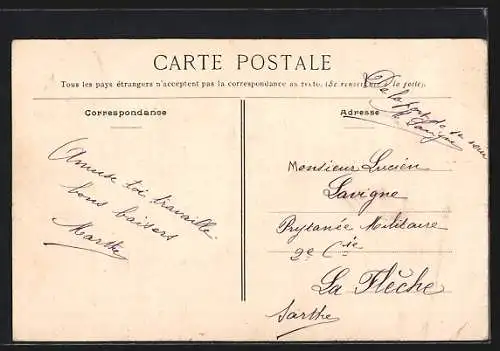 CARTE POSTALE
Tous les pays étrangers n'acceptent pas la correspondance au recto. (Se renseigner à la poste).
Correspondance
Amuse toi, travaille
bons baisers
Marthe
Adresse
De la part de sa sœur
M Lavigne
Monsieur Lucien
Lavigne
Prytanée Militaire
2e Cie
La Flèche
Sarthe